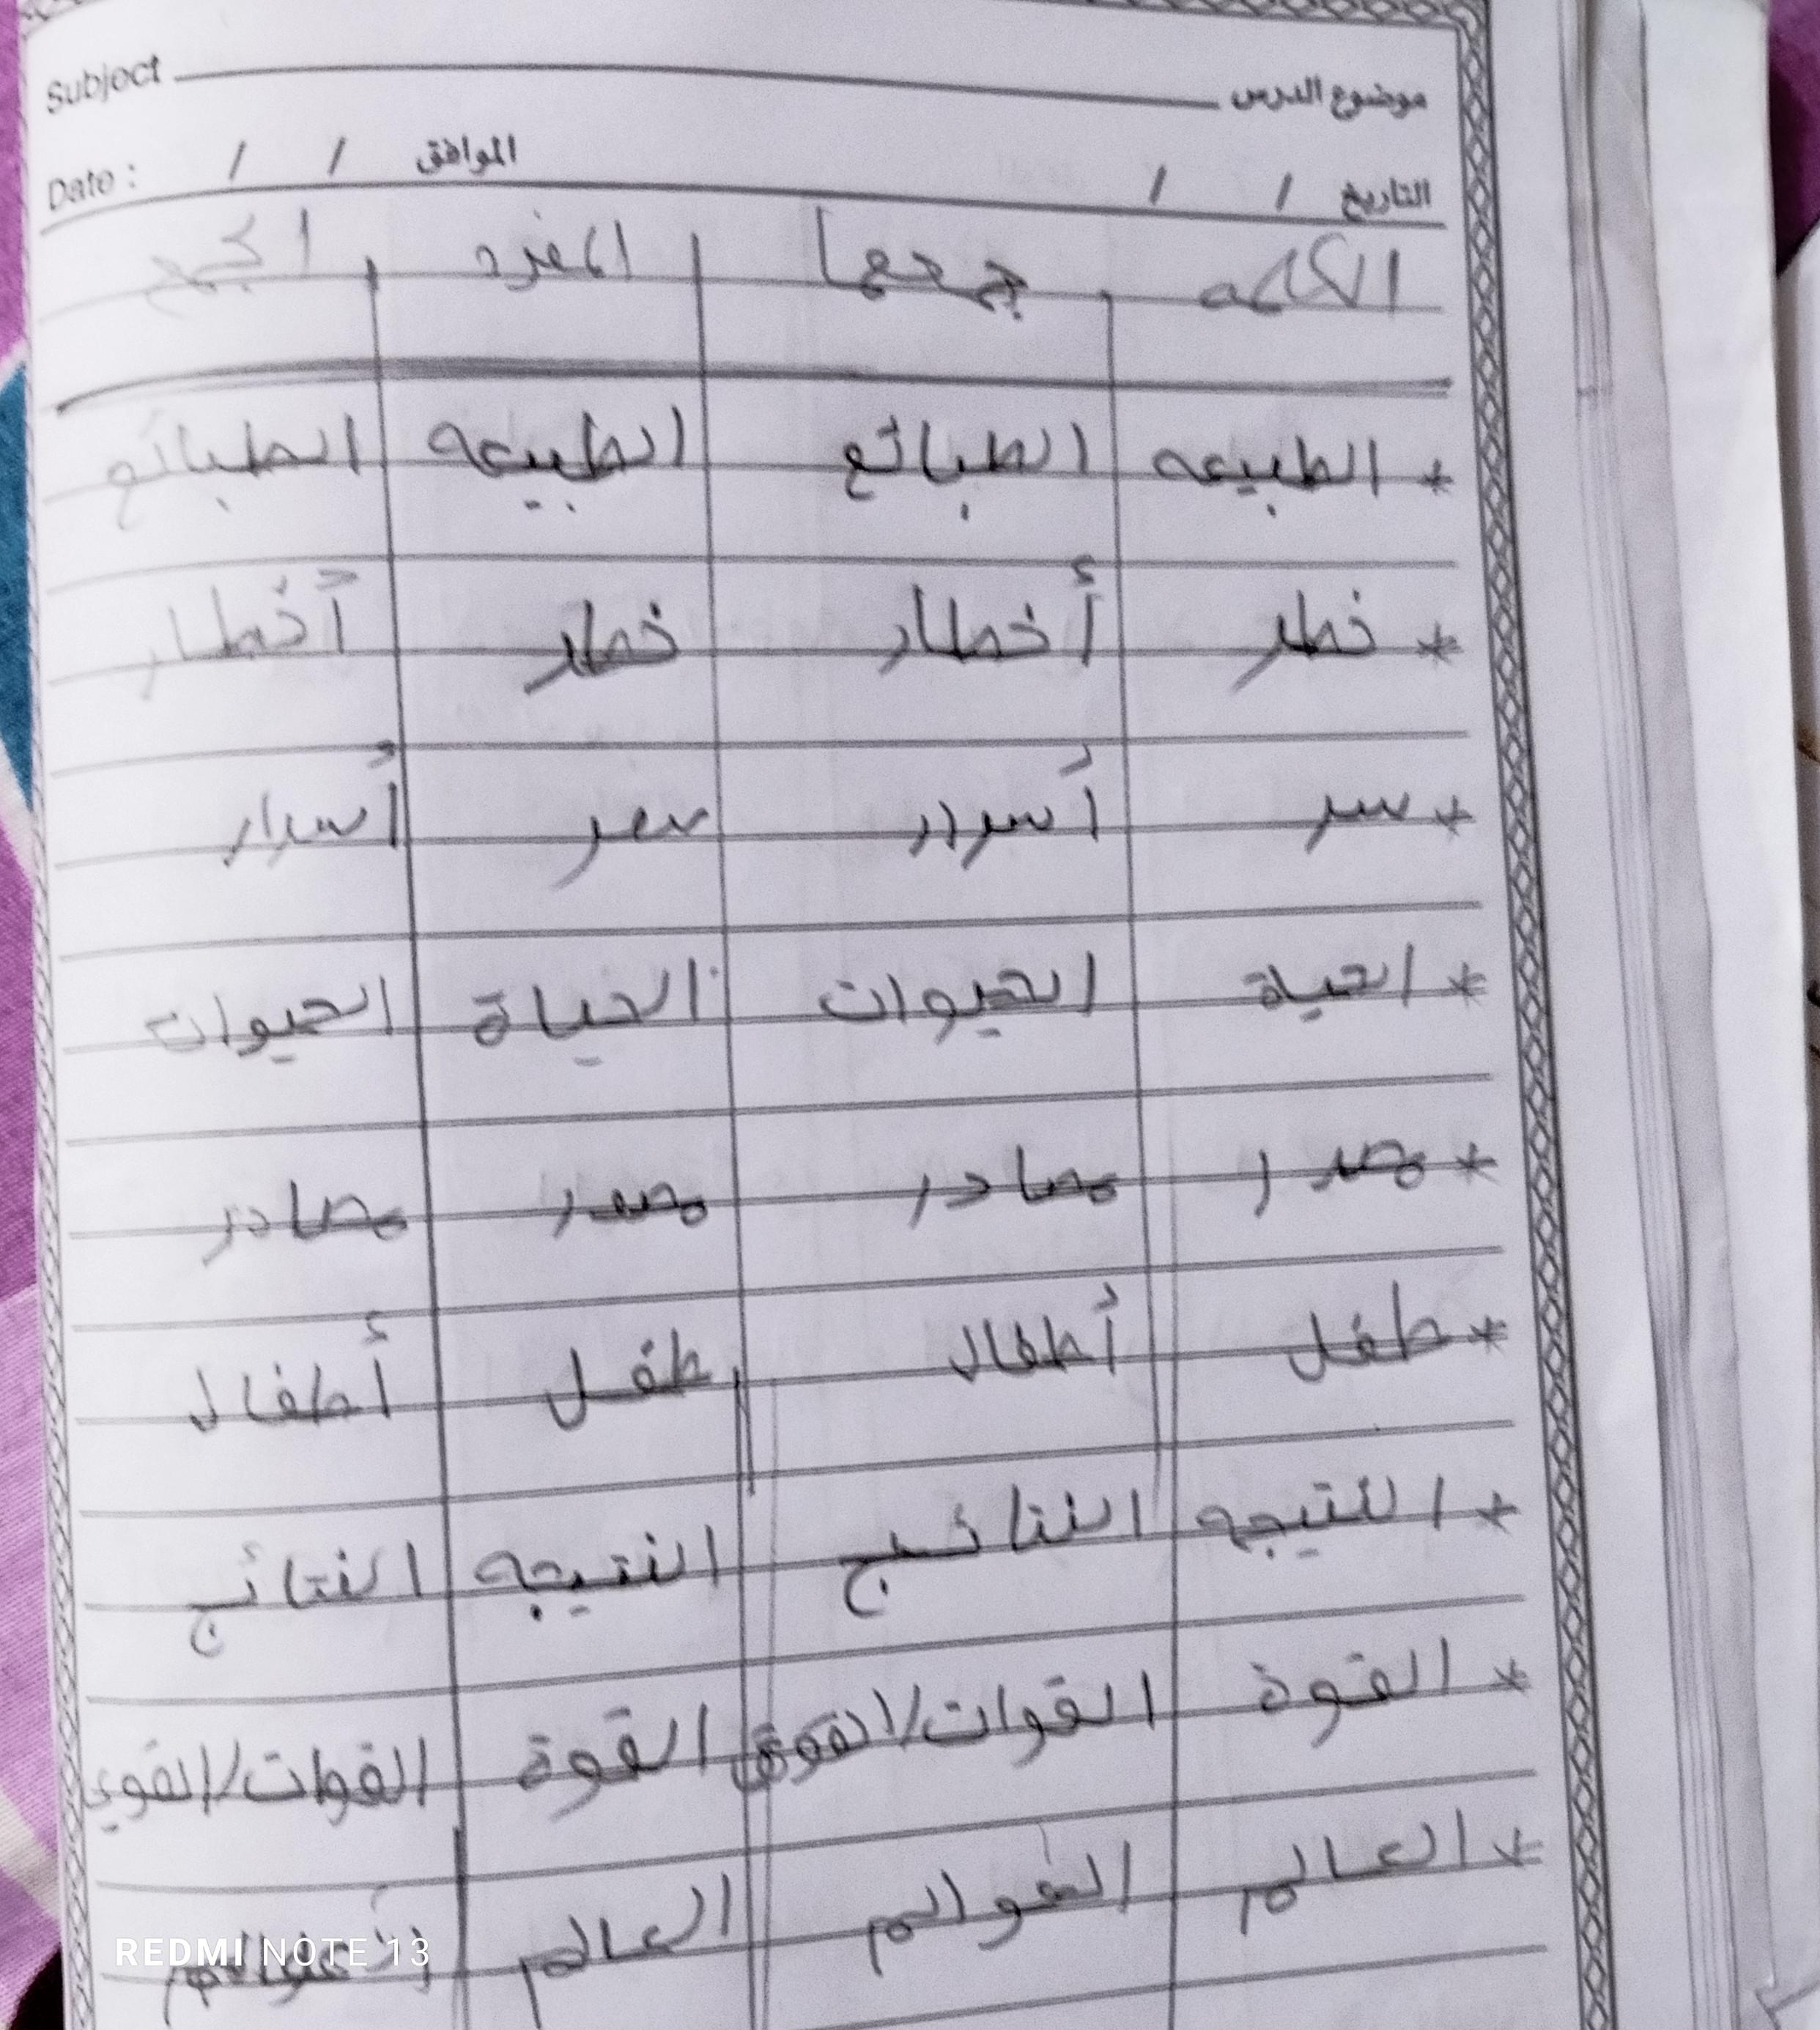 Subject موضوع الدرس
Date : / / الموافق / / التاريخ
الكلمه جمعها المفرد الجمع
* الطبيعه الطبائع الطبيعه الطبائع
* خطر أخطار خطر أخطار
* سر أسرار سر أسرار
* الحياة الحيوات الحياة الحيوات
* مصدر مصادر مصدر مصادر
* طفل أطفال طفل أطفال
* النتيجه النتائج النتيجه النتائج
* القوة القوات/القوى القوة القوات/القوي
* العالم العوالم العالم العوالم
REDMI NOTE 13